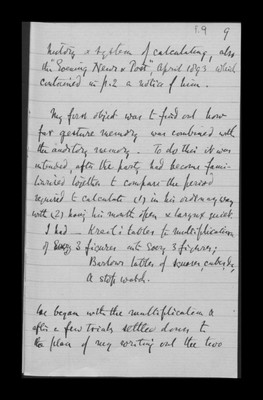 19 9
history & system of calculating, also
the "Evening News & Post", April 1893 which
contained in p.2 a notice of him.
My first object was to find out how
far gesture memory was combined with
the auditory memory. To do this it was
intended, after the party had become fami-
liarised together to compare the period
required to calculate (1) in his ordinary way
with (2) having his mouth open & larynx quiet.
I had – Crelle's tables to multiplication
of 3 figures into 3 figures;
Barlow's tables of squares, cubes &c,
A stop watch.
We began with the multiplication &
after a few trials settled down to
the plan of my writing out the two